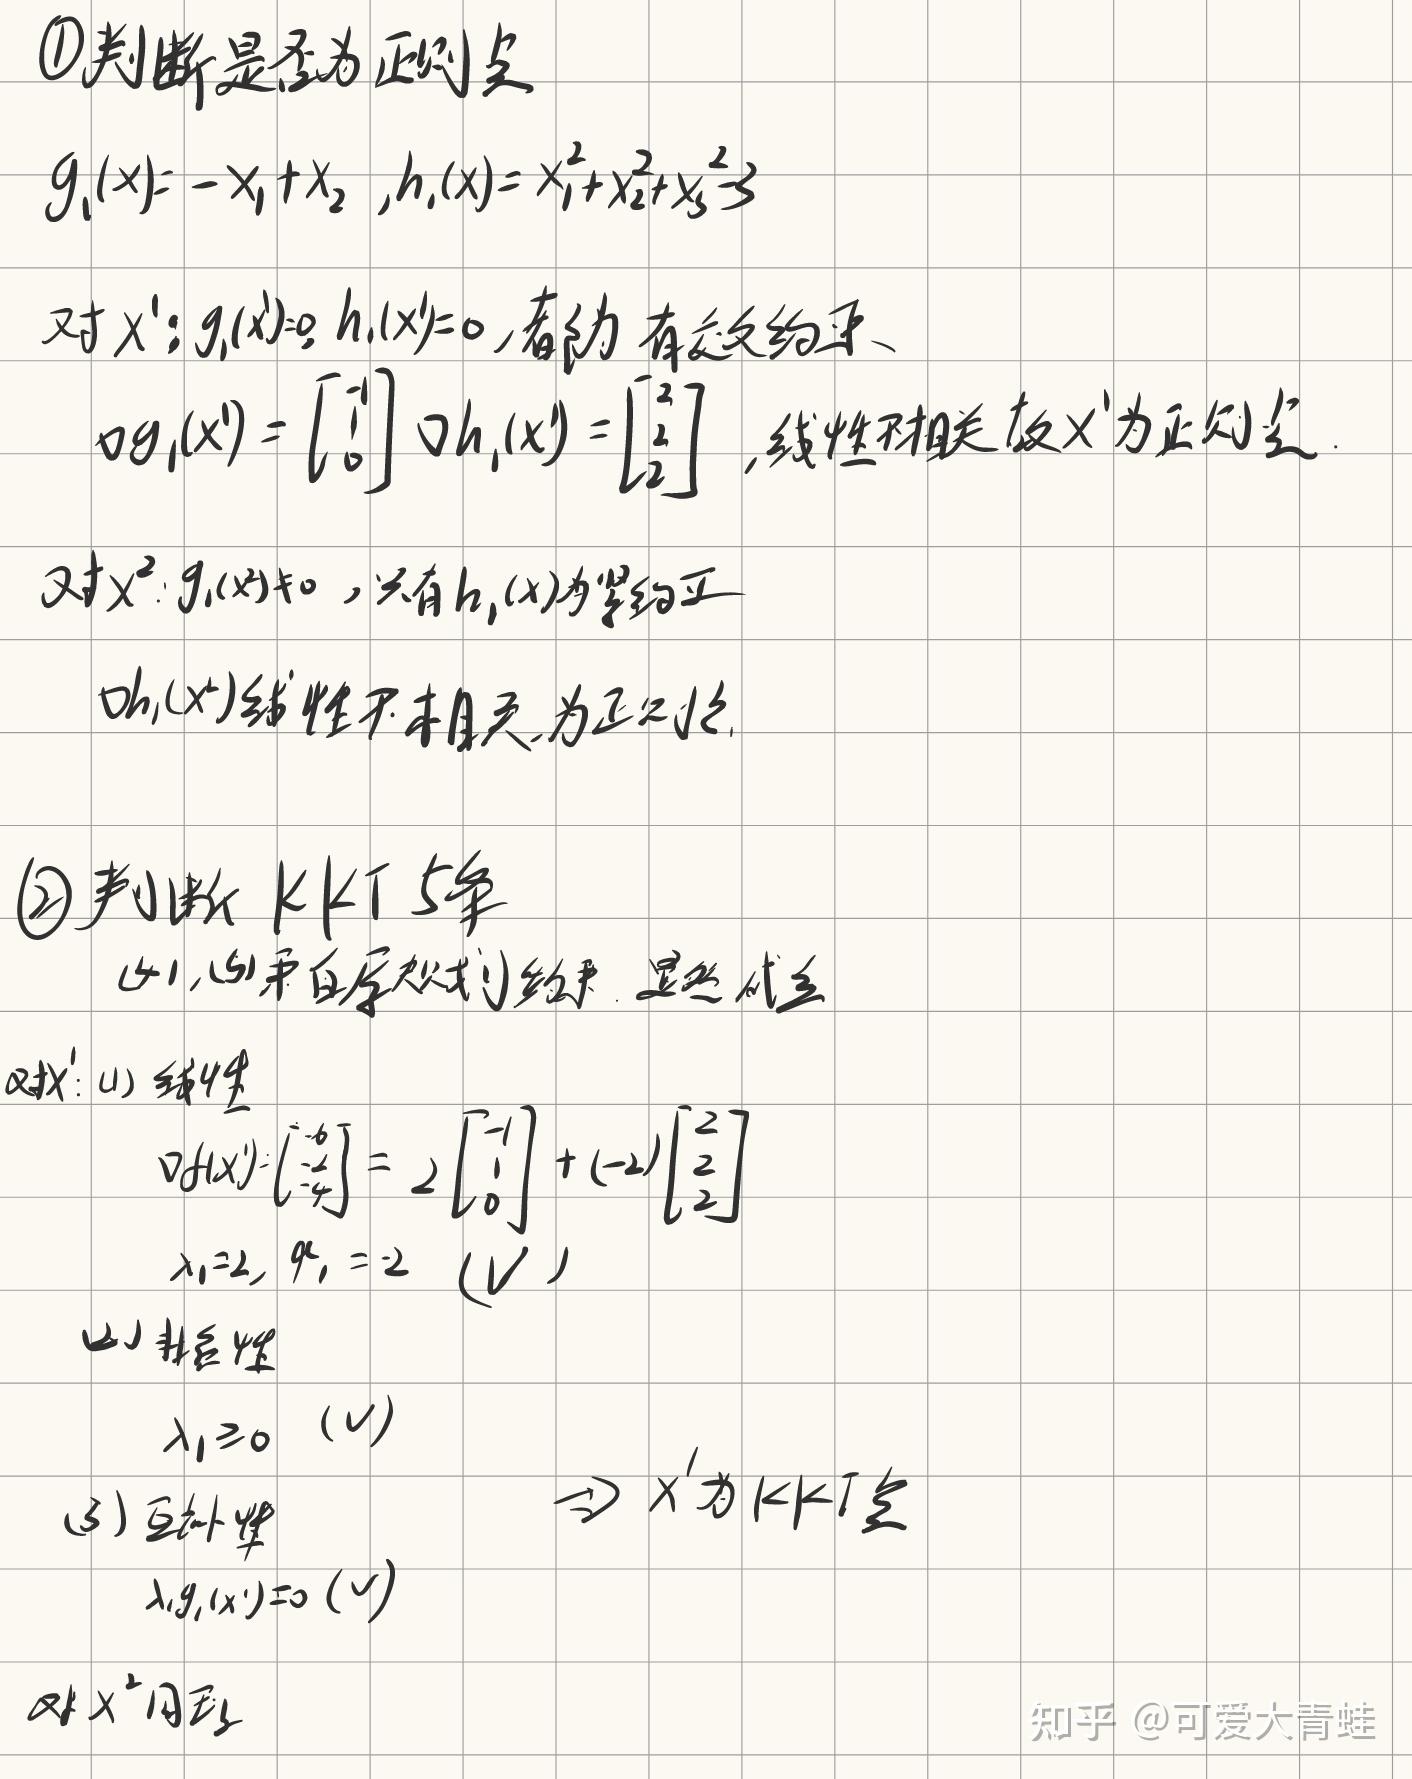 ①判断是否为正则点
g₁(x)=-x₁+x₂,h₁(x)=x₁²+x₂²+x₃²-3
对x¹:g₁(x¹)=0,h₁(x¹)=0,都为有效约束、
∇g₁(x¹)=[-1 1 0] ∇h₁(x¹)=[2 2 2],线性不相关故x¹为正则点.
对x²:g₁(x²)≠0,只有h₁(x)为紧约束
∇h₁(x²)线性不相关,为正则点.
②判断KKT5条
(4),(5)来自原规划约束.显然成立
对x¹:(1)线性
∇f(x¹)=[-6 -2 -4]=2[-1 1 0]+(-2)[2 2 2]
λ₁=2, =-2 (√)
(2)非负性
λ₁≥0 (√)
(3)互补性
⇒x¹为KKT点
λ₁g₁(x¹)=0(√)
对x²同理
知乎 @可爱大青蛙